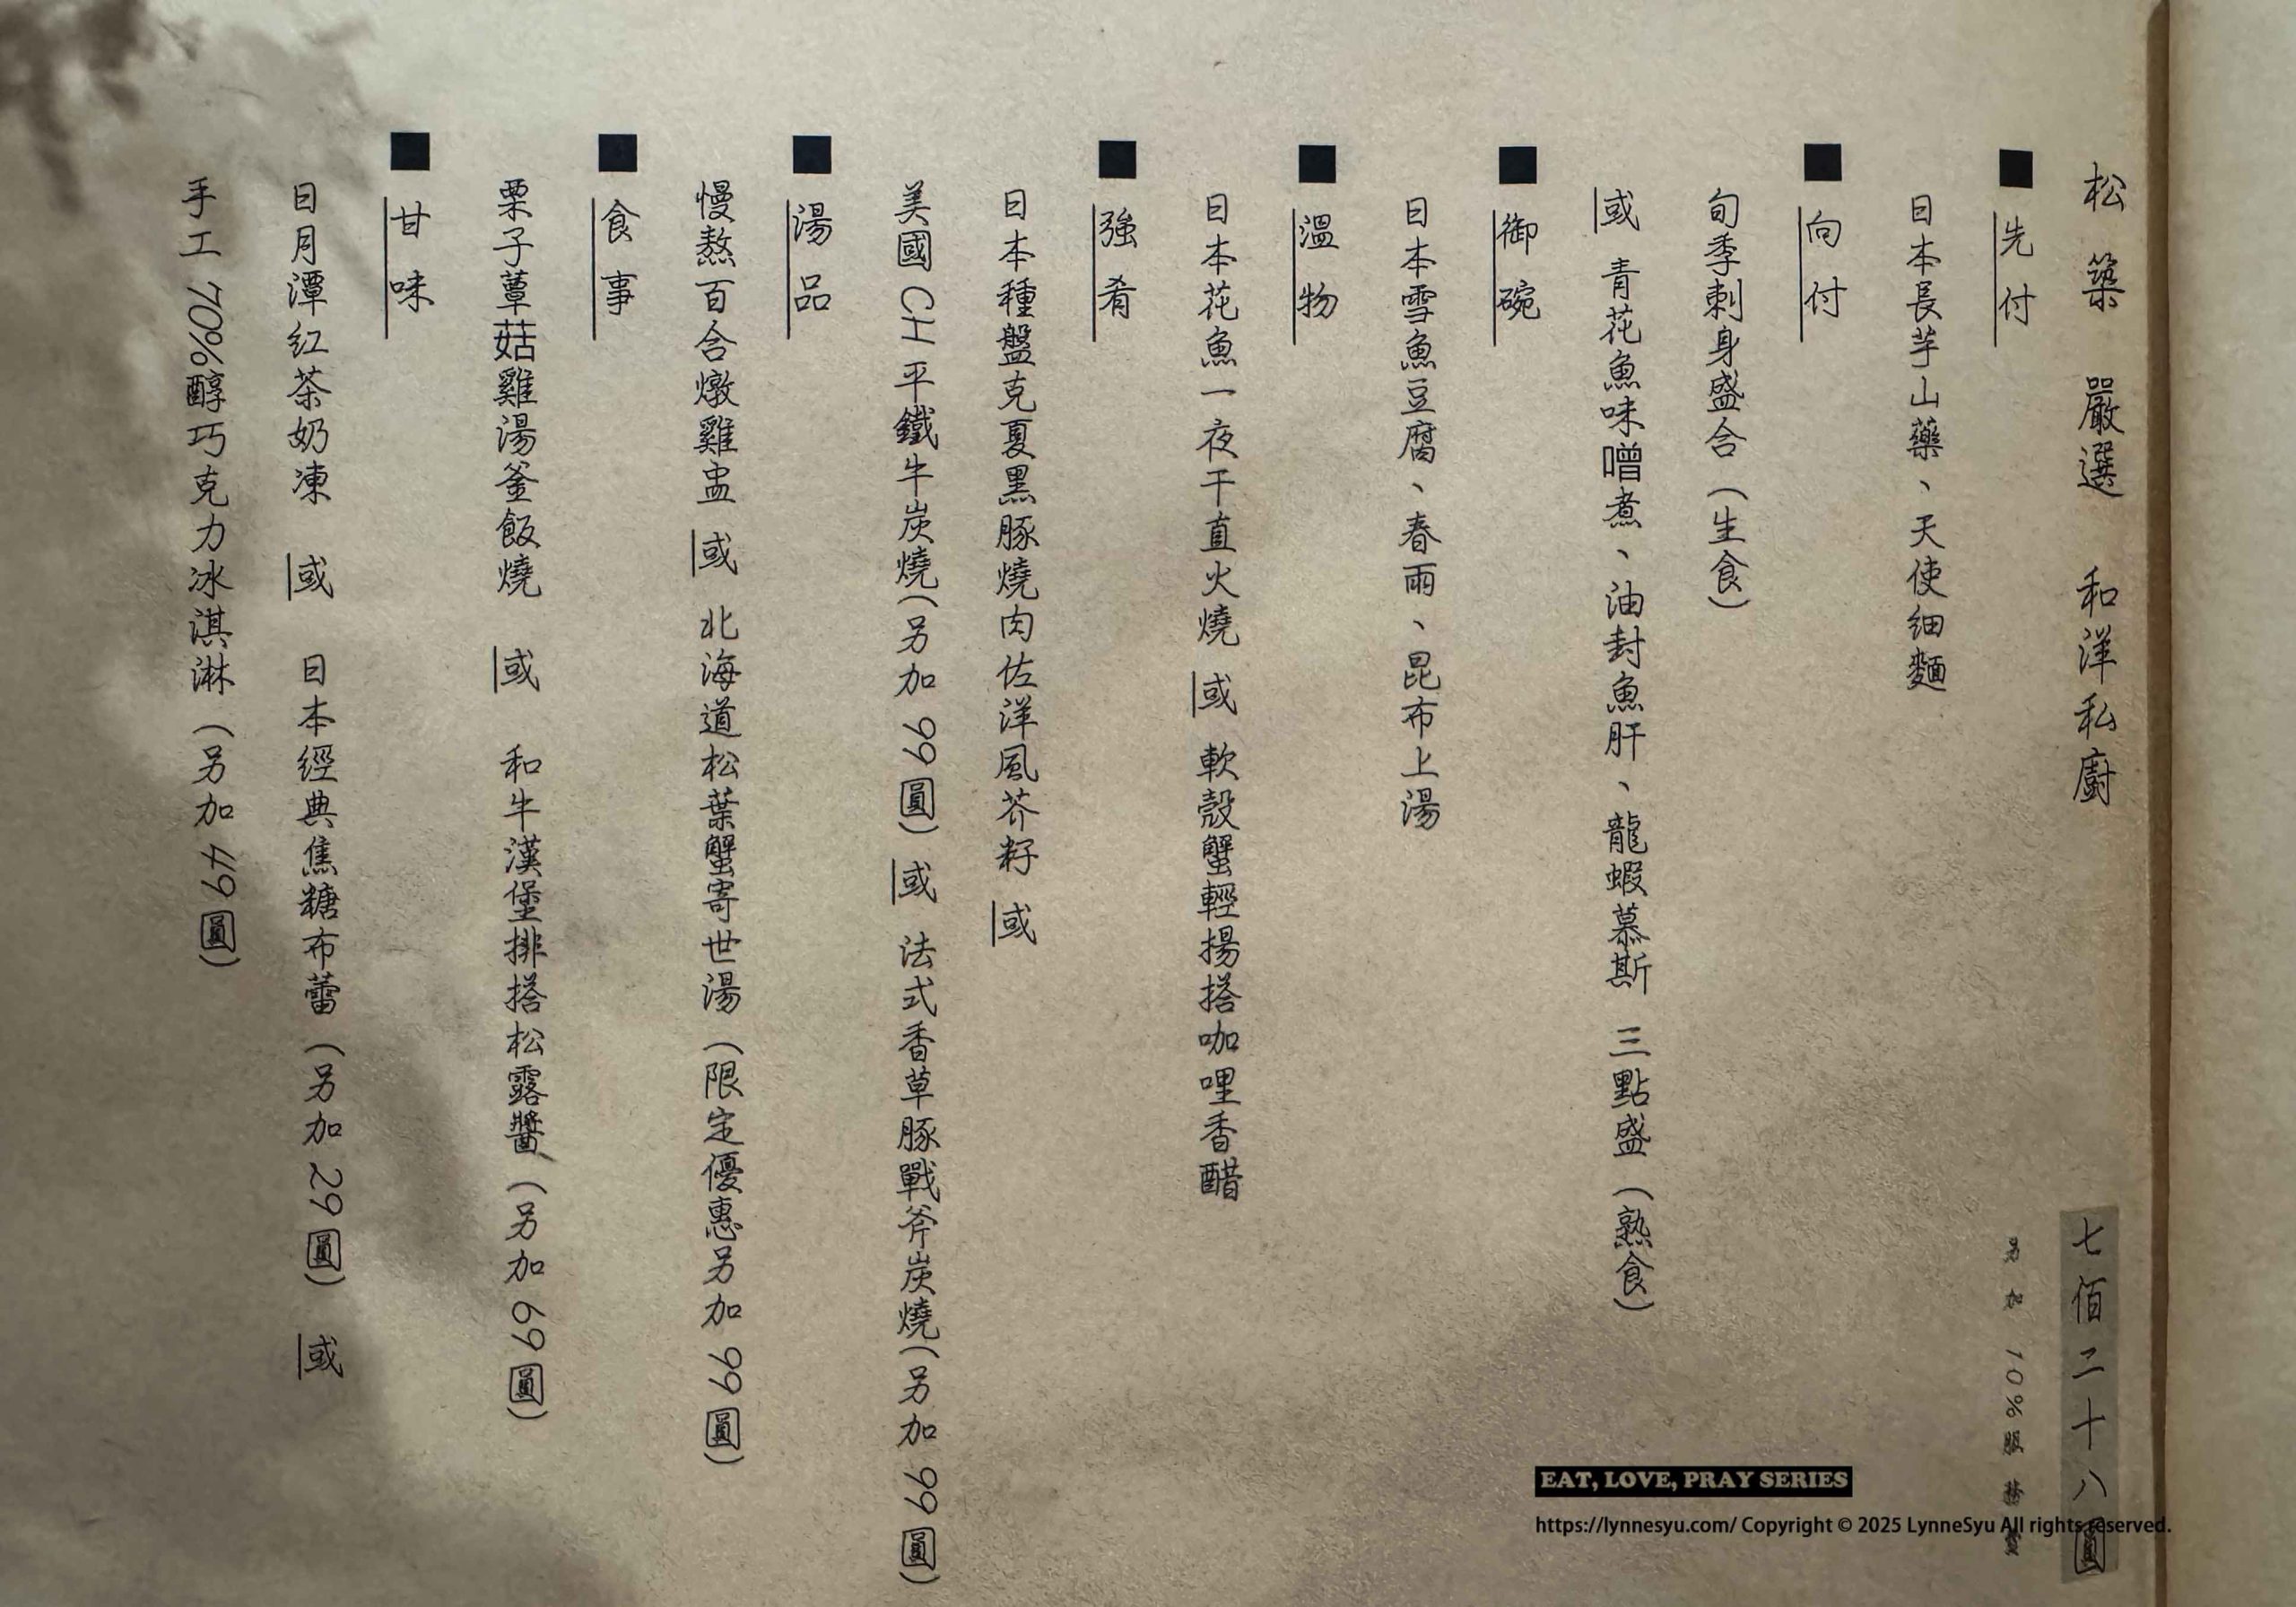 松築 嚴選 和洋私廚
七佰二十八圓
另加 10%服務費
■先付
日本長芋山藥、天使細麵
■向付
旬季刺身盛合(生食)
或 青花魚味噌煮、油封魚肝、龍蝦慕斯 三點盛(熟食)
■御碗
日本雪魚豆腐、春雨、昆布上湯
■溫物
日本花魚一夜干直火燒 或 軟殼蟹輕揚搭咖哩香醋
■強肴
日本種盤克夏黑豚燒肉佐洋風芥籽 或
美國 CH 平鐵牛炭燒(另加 99 圓) 或 法式香草豚戰斧炭燒(另加 99 圓)
■湯品
慢熬百合燉雞盅 或 北海道松葉蟹寄世湯(限定優惠另加 99 圓)
■食事
栗子蕈菇雞湯釜飯燒 或 和牛漢堡排搭松露醬(另加 69 圓)
■甘味
日月潭紅茶奶凍 或 日本經典焦糖布蕾(另加 29 圓) 或
手工 70%醇巧克力冰淇淋(另加 49 圓)
EAT, LOVE, PRAY SERIES
https://lynnesyu.com/ Copyright © 2025 LynneSyu All rights reserved.